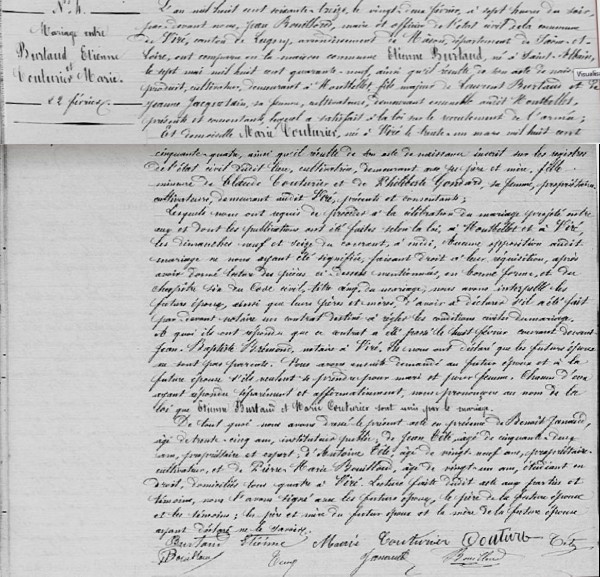 N° 4.
Mariage entre
Burtaud Etienne
et
Couturier Marie.
22 février.
L'an mil huit cent soixante treize, le vingt deux février, à sept heures du soir
par devant nous, Jean Bouilloud, maire et officier de l'état civil de la commune
de Viré, canton de Lugny, arrondissement de Macon, département de Saône-et-
Loire, ont comparu en la maison commune Etienne Burtaud, né à Saint-Albain,
le sept mai mil huit cent quarante-neuf, ainsi qu'il résulte de son acte de nais
produit, cultivateur, demeurant à Montbellet, fils majeur de Laurent Burtaud et de
Jeanne Jacquelain, sa femme, cultivateurs, demeurant ensemble audit Montbellet,
présents et consentants, lequel a satisfait à la loi sur le recrutement de l'armée;
Et demoiselle Marie Couturier, née à Viré le trente un mars mil huit cent
cinquante-quatre, ainsi qu'il résulte de son acte de naissance inscrit sur les registres
de l'état civil dudit lieu, cultivatrice, demeurant avec ses père et mère, fille
mineure de Claude Couturier et de Philiberte Gondard, sa femme, propriétaires
cultivateurs, demeurant audit Viré, présents et consentants;
Lesquels nous ont requis de procéder à la célébration du mariage projeté entre
eux et dont les publications ont été faites selon la loi, à Montbellet et à Viré,
les dimanches neuf et seize du courant, à midi. Aucune opposition audit
mariage ne nous ayant été signifiée, faisant droit à leur requisition, après
avoir donné lecture des pièces ci-dessus mentionnées, en bonne forme, et du
chapitre six du Code civil, titre cinq, du mariage, nous avons interpellé les
futurs époux, ainsi que leurs pères et mères, d'avoir à déclarer s'il a été fait
par devant notaire un contrat destiné à régler les conditions civiles du mariage.
à quoi ils ont répondu que ce contrat a été passé le huit février courant devant
Jean-Baptiste Brémond, notaire à Viré. Ils nous ont déclaré que les futurs époux
ne sont pas parents. Nous avons ensuite demandé au futur époux et à la
future épouse s'ils veulent se prendre pour mari et pour femme. Chacun d'eux
ayant répondu séparément et affirmativement, nous prononçons au nom de la
loi que Etienne Burtaud et Marie Couturier sont unis par le mariage.
De tout quoi nous avons dressé le présent acte en présence de Benoît Janaud,
âgé de trente-cinq ans, instituteur public; de Jean Tête, âgé de cinquante-deux
ans, propriétaire et expert; d'Antoine Tête, âgé de vingt-neuf ans, propriétaire-
cultivateur, et de Pierre-Marie Bouilloud, âgé de vingt-un ans, étudiant en
droit, domiciliés tous quatre à Viré. Lecture faite dudit acte aux parties et
témoins, nous l'avons signé avec les futurs époux, le père de la future épouse
et les témoins; les père et mère du futur époux et la mère de la future épouse
ayant déclaré ne le savoir.
Burtaud Etienne Marie Couturier Couturier Tête
Bouilloud Janaud Bouilloud